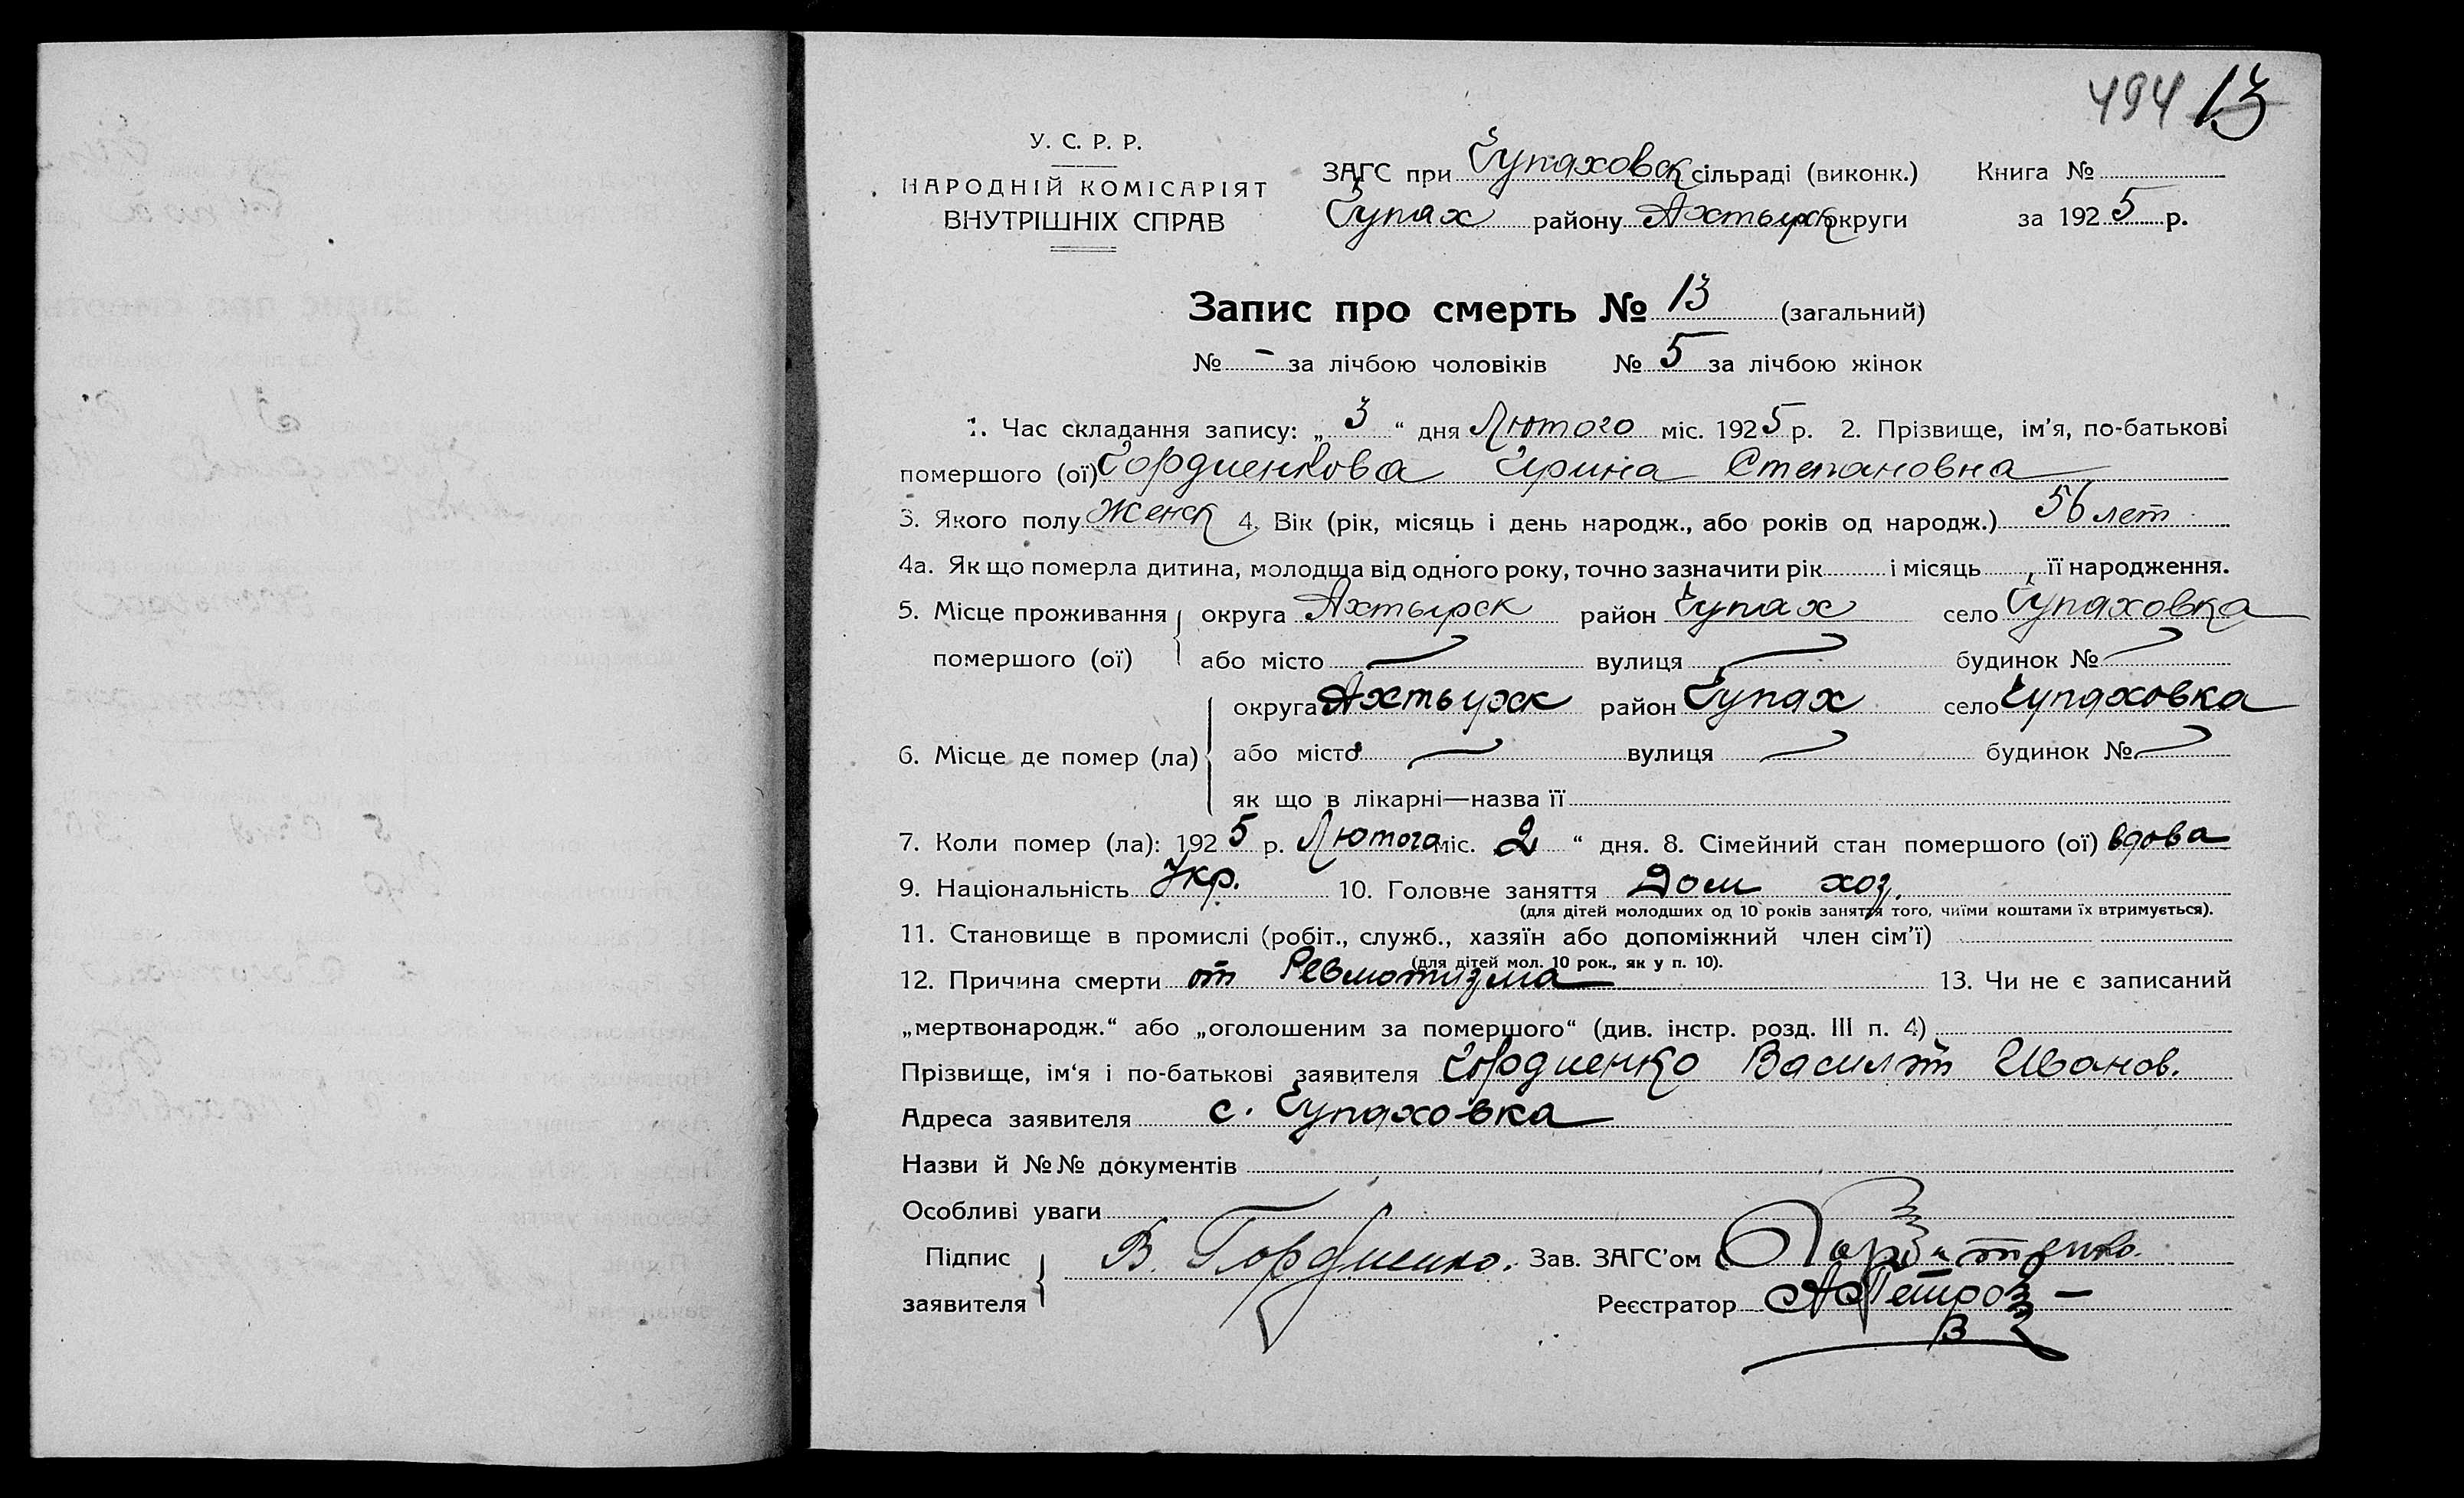 494 13
У. С. Р. Р.
НАРОДНІЙ КОМІСАРІЯТ
ВНУТРІШНІХ СПРАВ
ЗАГС при Чупаховск сільраді (виконк.) Книга №
Чупах району Ахтырск округи за 1925 р.
Запис про смерть № 13 (загальний)
№ – за лічбою чоловіків № 5 за лічбою жінок
1. Час складання запису: „3“ дня Лютого міс. 1925 р. 2. Прізвище, ім’я, по-батькові
помершого (ої) Гордиенкова Ирина Степановна
3. Якого полу Женск 4. Вік (рік, місяць і день народж., або років од народж.) 56 лет
4а. Як що померла дитина, молодша від одного року, точно зазначити рік і місяць її народження.
5. Місце проживання округа Ахтырск район Чупах село Чупаховка
помершого (ої) або місто — вулиця — будинок № —
округа Ахтырск район Чупах село Чупаховка
6. Місце де помер (ла) або місто — вулиця — будинок № —
як що в лікарні—назва її
7. Коли помер (ла): 1925 р. Лютого міс. 2 “ дня. 8. Сімейний стан помершого (ої) вдова
9. Національність Укр. 10. Головне заняття Дом хоз.
(для дітей молодших од 10 років заняття того, чиїми коштами їх втримується).
11. Становище в промислі (робіт., служб., хазяїн або допоміжний член сім’ї)
(для дітей мол. 10 рок., як у п. 10).
12. Причина смерти от Ревмотизма 13. Чи не є записаний
„мертвонародж.“ або „оголошеним за помершого“ (див. інстр. розд. III п. 4)
Прізвище, ім‘я і по-батькові заявителя Гордиенко Василий Иванов.
Адреса заявителя с. Чупаховка
Назви й №№ документів
Особливі уваги
Підпис заявителя В. Гордиенко. Зав. ЗАГС’ом
Реєстратор